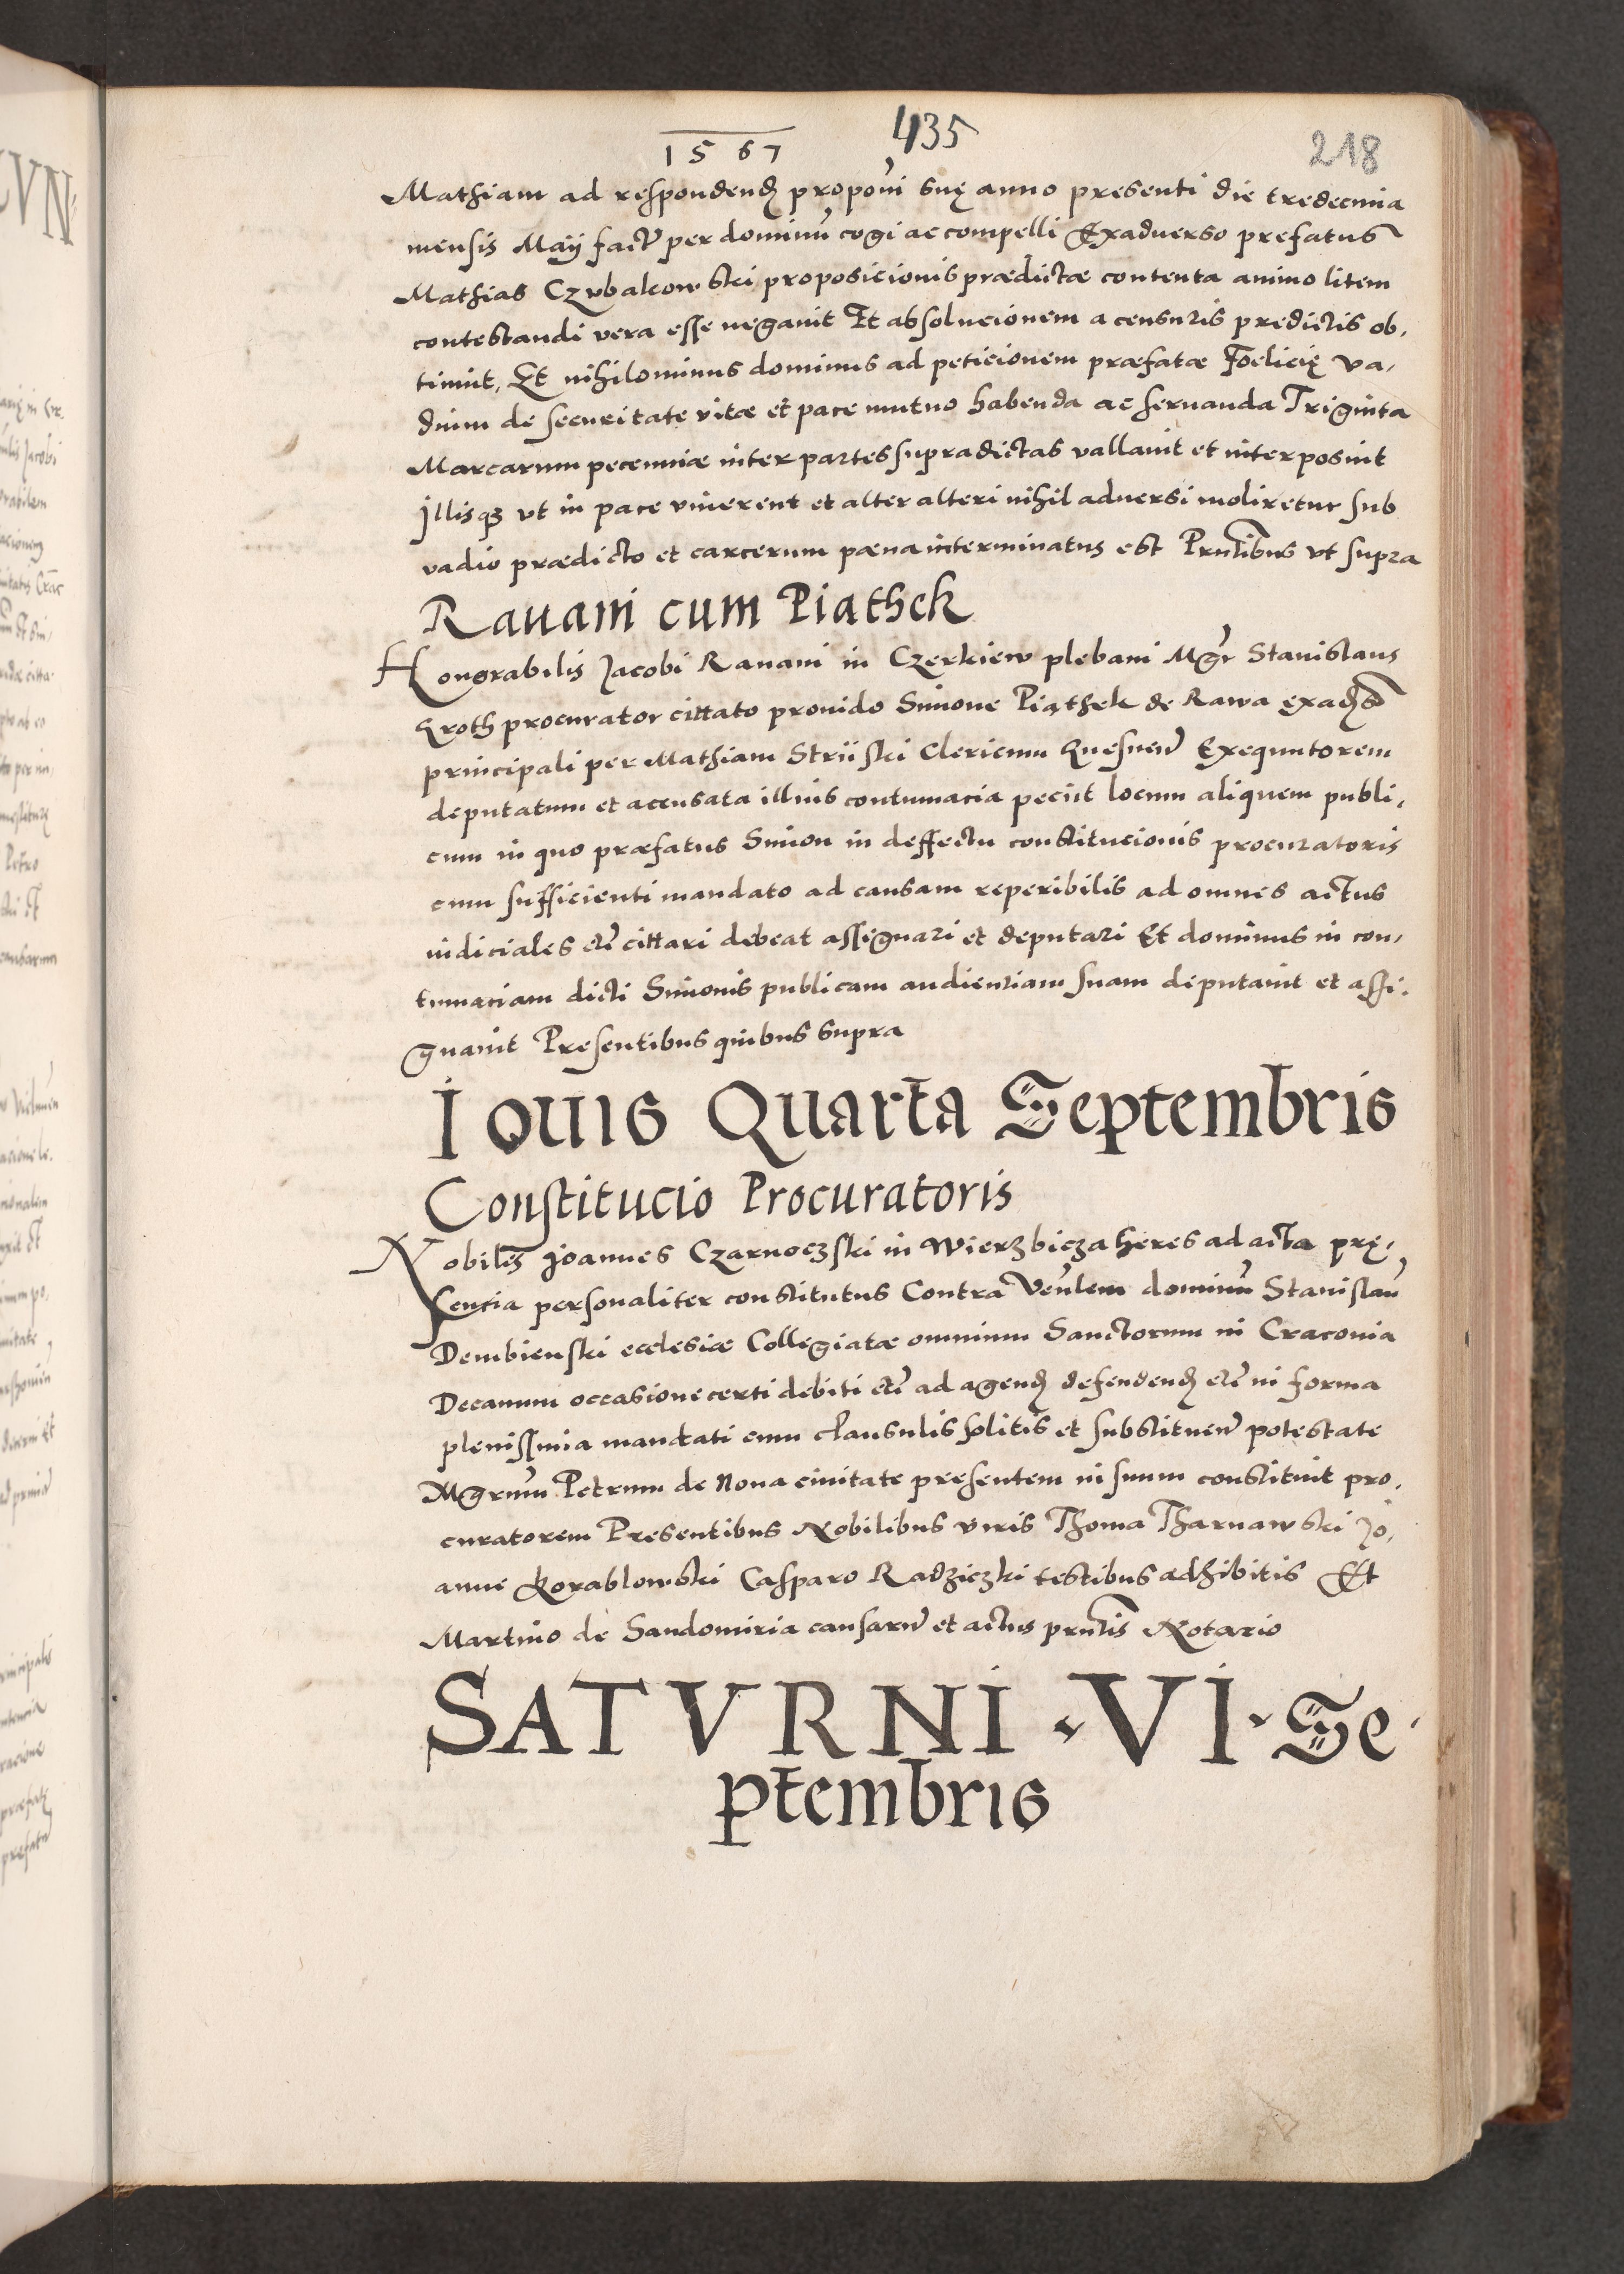 1567
435
218
Mathiam ad respondend proponi suę anno presenti die tredecima
mensis Maij factę per dominū cogi ac compelli Exaduerso prefatus
Mathias Czubalkowski proposicionis prædictæ contenta animo litem
contestandi vera esse negauit Et absolucionem a censuris predictis ob,
tinuit, Et nihilominus dominus ad peticionem præfatæ Foelicię va,
dium de securitate vitæ et pace mutuo habenda ac seruanda Triginta
Marcarum pecuniæ inter partes supradictas vallauit et interposuit
Illisq3 vt in pace viuerent et alter alteri nihil aduersi moliretur sub
vadio prædicto et carcerum pæna interminatus est Prntibus vt supra
Rauani cum Piathek
Honorabilis Jacobi Rauani in Czerkiew plebani Mgr Stanislaus
Kroth procurator cittato prouido Simone Piąthek de Rawa
principali per Mathiam Strijski Clericum Exequutorem
deputatum et accusata illius contumacia peciit locum aliquem publi,
cum in quo præfatus Simon in deffectu constitucionis procuratoris
cum sufficienti mandato ad causam reperibilis ad omnes actus
iudiciales etc cittari debeat assignari et deputari Et dominus in con,
tumaciam dicti Simonis publicam audientiam suam deputauit et assi,
gnauit Presentibus quibus supra
IOUIS Quarta Septembris
Constitucio Procuratoris
Nobilis Joannes Czarnoczski in Wierzbicza heres ad acta prę,
sentia personaliter constitutus Contra Venlem dominū Stanislaū
Dembienski ecclesiæ Collegiatæ omnium Sanctorum in Craconia
Decanum occasione certi debiti etc ad agend defendend etc in forma
plenissima mandati cum clausulis solitis et substituen potestate
Mgrum Petrum de Noua ciuitate presentem in suum constituit pro,
curatorem Presentibus Nobilibus viris Thoma Tharnawski Jo,
anne Korablowski Casparo Radziczki testibus adhibitis Et
Martino de Sandomiria causarū et actus prntis Notario
SATVRNI · VI · Se,
ptembris